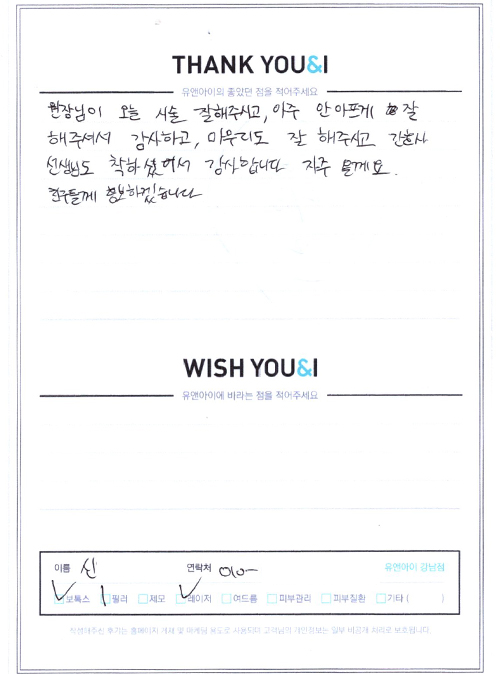 THANK YOU&I
유앤아이의 좋았던 점을 적어주세요
원장님이 오늘 시술 잘해주시고, 아주 안아프게 잘
해주셔서 감사하고, 마무리도 잘 해주시고 간호사
선생님도 착하셨어서 감사합니다 자주 올께요.
친구들께 홍보하겠습니다
WISH YOU&I
유앤아이에 바라는 점을 적어주세요
이름 신 연락처 010- 유앤아이 강남점
보톡스 필러 제모 레이저 여드름 피부관리 피부질환 기타 ( )
작성해주신 후기는 홈페이지 게재 및 마케팅 용도로 사용되며 고객님의 개인정보는 일부 비공개 처리로 보호됩니다.